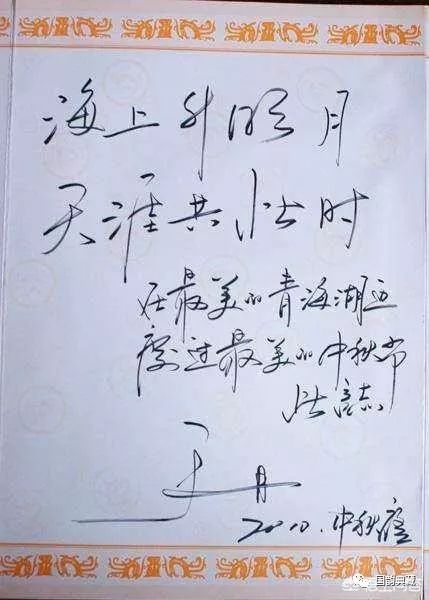 海上升明月
天涯共此时
在最美的青海湖
度过最美的中秋节
此志
于丹
2010.中秋
国韵典藏